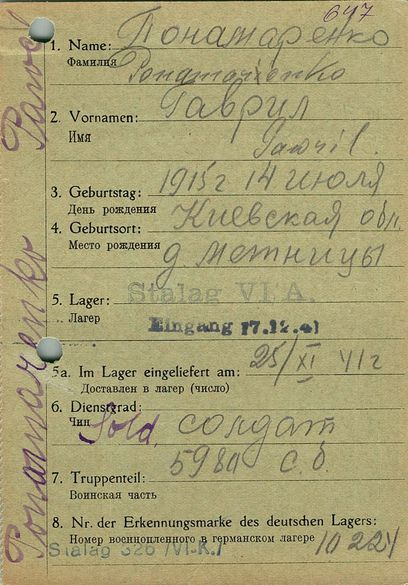 647
1. Name: Понамаренко
Фамилия Ponamarenko
2. Vornamen: Гаврил
Имя Gawril.
3. Geburtstag: 1915г 14 июля
День рождения
4. Geburtsort: Киевская обл.
Место рождения д. Метницы
5. Lager: Stalag VI A.
Лагерь Eingang 17.12.41
5a. Im Lager eingeliefert am: 25/XI 41г
Доставлен в лагер (число)
6. Dienstgrad:
Чин Sold, солдат
7. Truppenteil: 598 с.б.
Воинская часть
8. Nr. der Erkennungsmarke des deutschen Lagers:
Номер военнопленного в германском лагере 10224
Stalag 326 /VI-K./
Ponomarenko Pawel